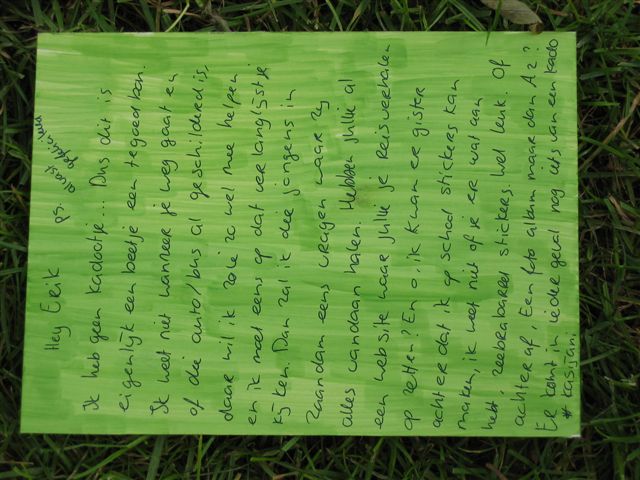 Hey Erik
ps. alvast gefeliciteerd
Ik heb geen kadootje... Dus dit is
eigenlijk een beetje een tegoedbon.
Ik weet niet wanneer je weg gaat en
of die auto/bus al geschilderd is,
daar wil ik zowiezo wel mee helpen
en ik moet eens op dat verlanglijstje
kijken. Dan zal ik die jongens in
Zaandam eens vragen waar zij
alles vandaan halen. Hebben jullie al
een website waar jullie je reisverhalen
op zetten? En o, ik kwam er gister
achter dat ik op school stickers kan
maken, ik weet niet of je er wat aan
hebt, zeebrabarbed stickers, wel leuk. Of
achteraf, Een foto album maar dan A2?
Er komt in ieder geval nog iets van een kado
# kasjani.